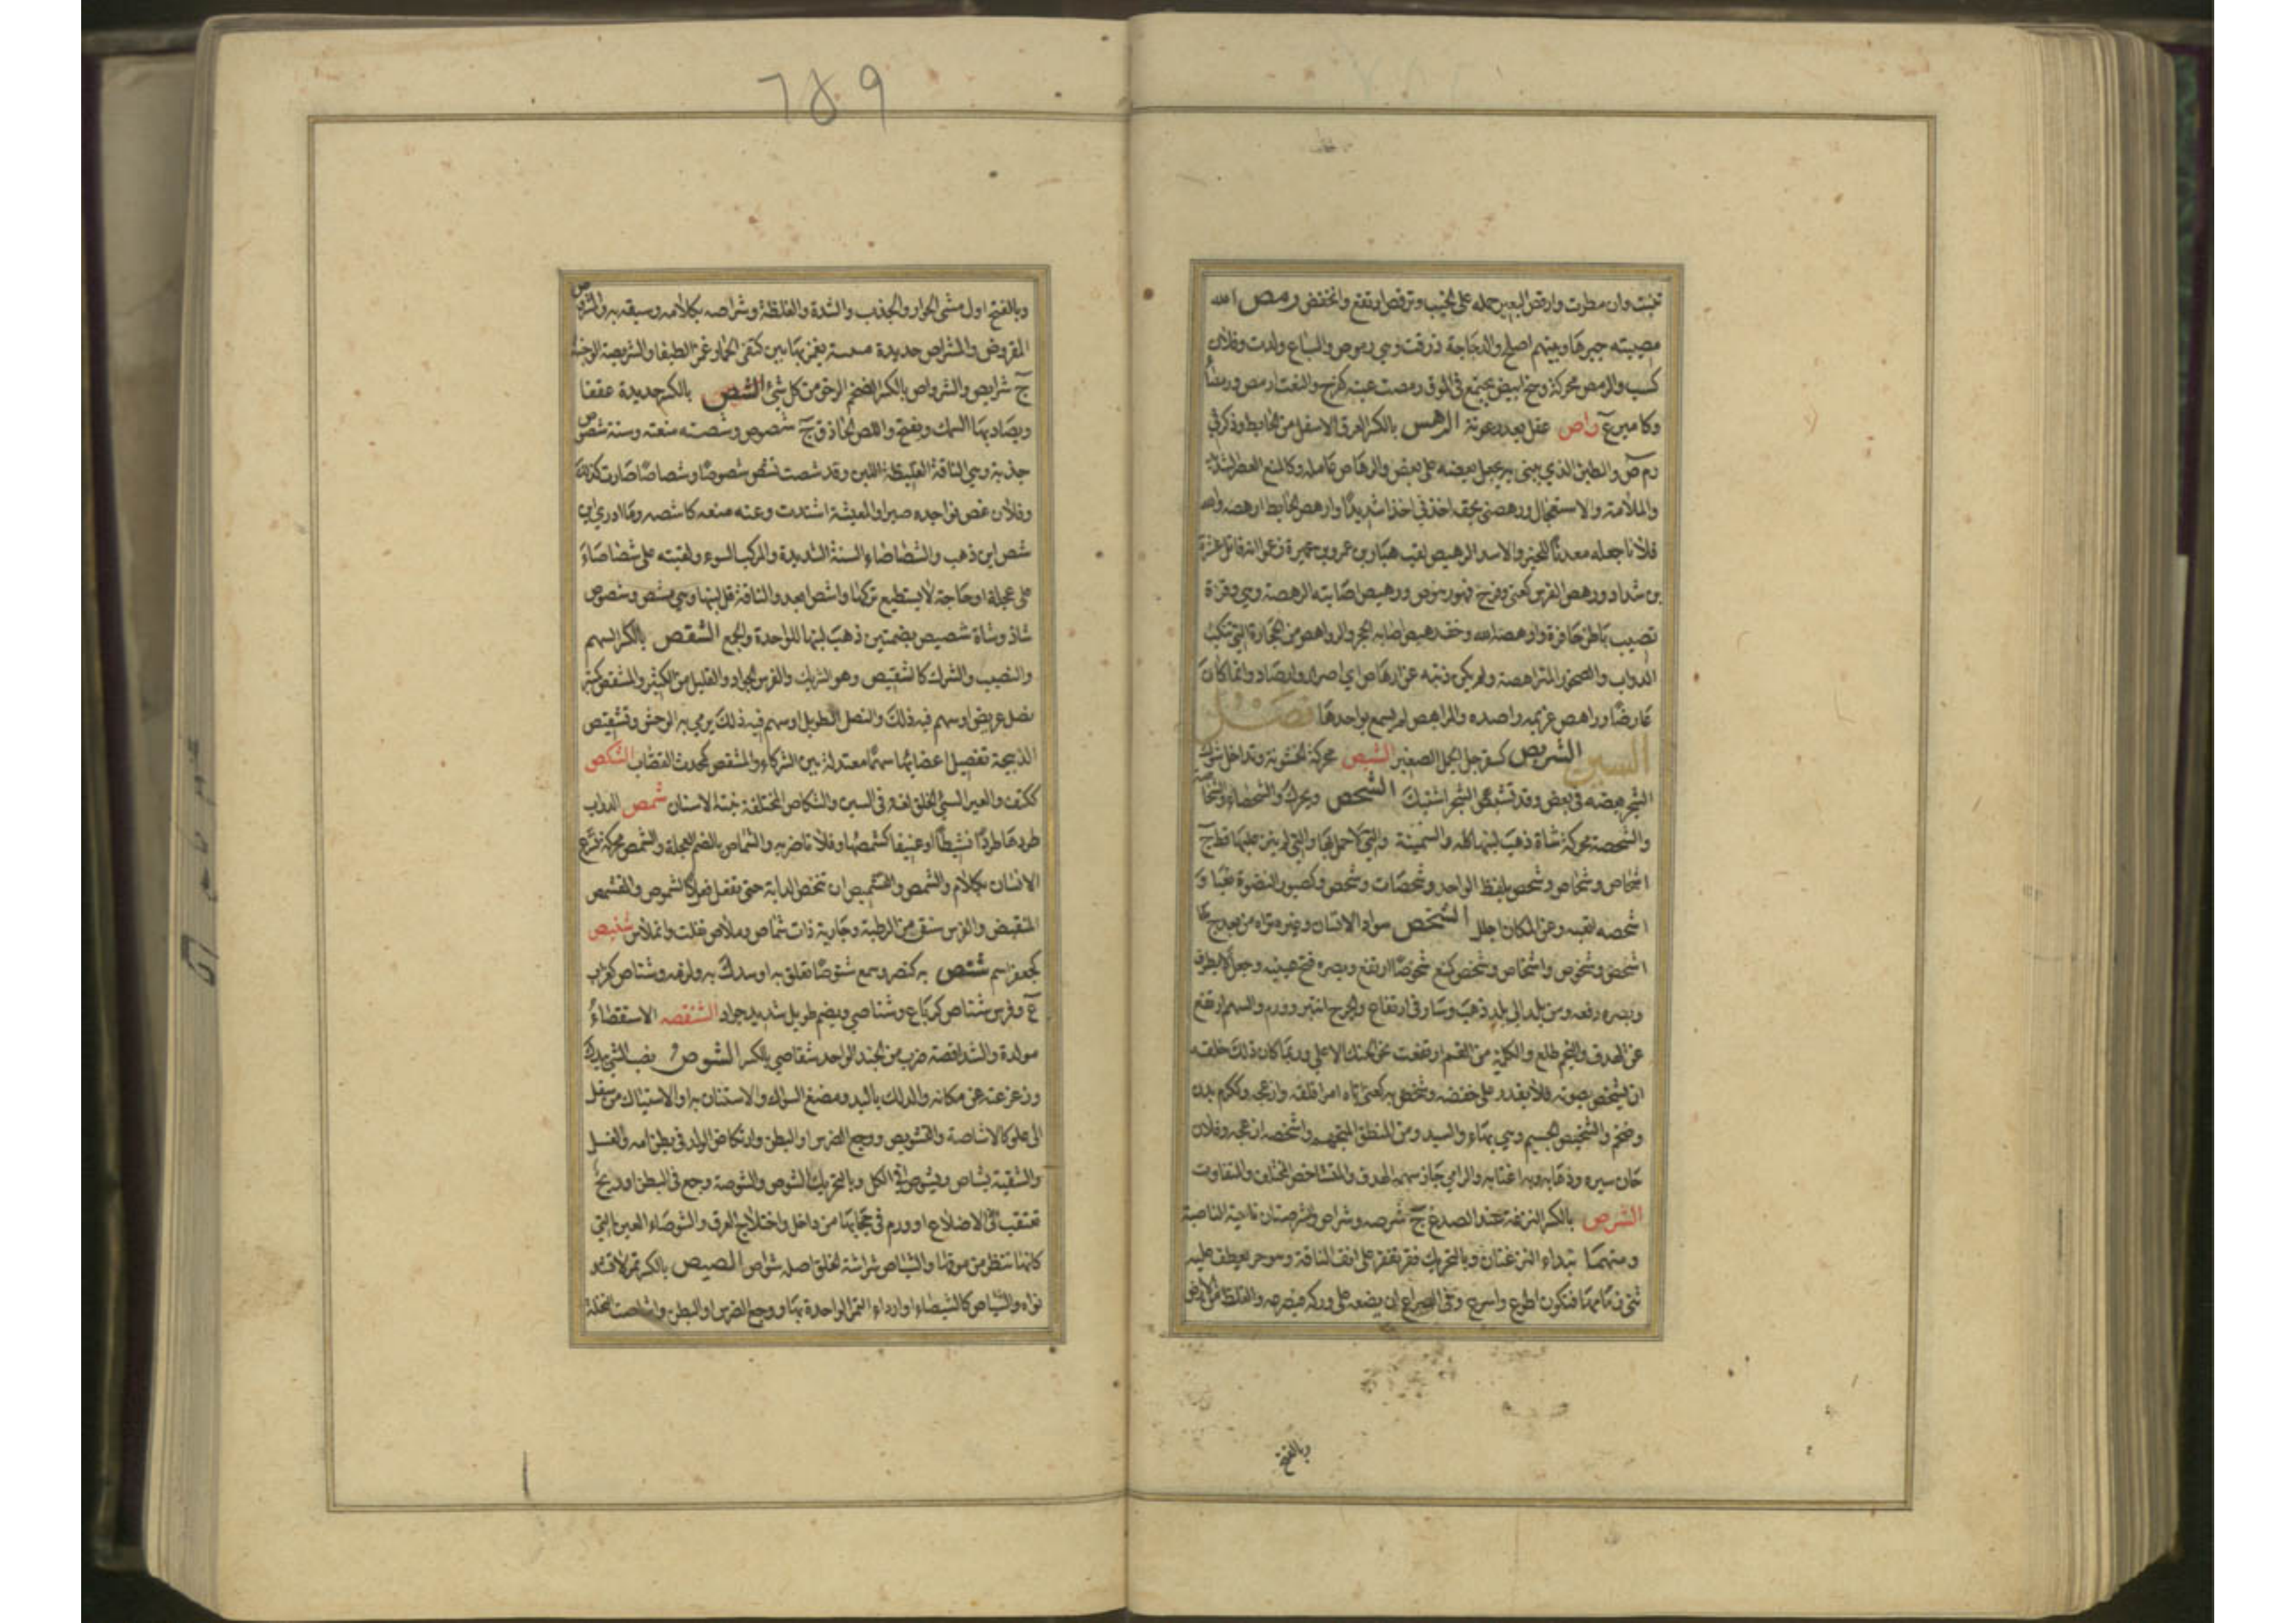 تنبت وان مطرت وارقص البعير حمله على الخبب وترقص ارتفع وانخفض رمص الله
مصيبته جبرها وبينهم اصلح والدجاجة ذرقت وهي رموص والسباع ولدت وفلان
كسب والرمص محركة وسخ ابيض يجتمع في الموق رمصت عينه كفرح والنعت ارمص ورمصاء
وكامير ع راص عقل بعد رعونة الرهص بالكسر العرق الاسفل من الحايط وذكر في
دم ص والطين الذي يبنى به يجعل بعضه على بعض والرهاص عامله وكالمنع العصر الشديد
والملامة والاستعجال ورهصني بحقه اخذني اخذا شديدا وارهص الحايط ارهصه والله
فلانا جعله معدنا للخير والاسد الرهيص لقب هبار بن عمرو بن عميرة زعم انه قاتل عنترة
بن شداد ورهص الفرس كعني وفرح فهو رهيص اصابته الرهصة وهي وقرة
تصيب باطن حافره وارهصه الله وخف رهيص اصابه الحجر والرواهص من الحجارة التي تنكب
الدواب والصخور المتراهصة ولم يكن ذنبه عن ارهاص اي اصرار وارصاد وانما كان
عارضا وراهص غريمه راصده والمراهص لم يسمع بواحدها فصل
الشين الشربص كسفرجل الجمل الصغير الشبص محركة الخشونة وتداخل شوك
الشجر بعضه في بعض وقد تشبص الشجر اشتبك الشحص ويحرك والشحصاء والشحاصة
والشحصة محركة شاة ذهب لبنها كله والسمينة والتي لا حمل بها والتي لم ينز عليها قط ج
اشحاص وشحاص وشحص بلفظ الواحد وشحصات وشحص وكصبور النضوة تعبا و
اشحصه اتعبه وعن المكان اجلاه الشخص سواد الانسان وغيره تراه من بعد ج
اشخص وشخوص واشخاص وشخص كمنع شخوصا ارتفع وبصره فتح عينيه وجعل لا يطرف
وبصره رفعه ومن بلد الى بلد ذهب وسار في ارتفاع والجرح انتبر وورم والسهم ارتفع
عن الهدف والنجم طلع والكلمة من الفم ارتفعت نحو الحنك الاعلى وربما كان ذلك خلقه
ان يشخص بصوته فلا يقدر على خفضه وشخص به كعني اتاه امر اقلقه وازعجه وككرم بدن
وضخم والشخيص الجسيم وهي بهاء والسيد ومن المنطق المتجهم واشخصه ازعجه وفلان
حان سيره وذهابه وبه اغتابه والرامي جاز سهمه الهدف والمتشاخص المختلف والمتفاوت
الشرص بالكسر النزعة عند الصدغ ج شرصه وشراص والشرصتان ناحيتا الناصية
ومنهما تبداء النزعتان وبالتحريك فقر يفقر على انف الناقة وهو حز يعطف عليه
ثني زمامها فتكون اطوع واسرع وفي الصراع ان يضعه على وركه فيصرعه والغلظ من الارض
وبالفتح
وبالفتح اول مشي الحوار والجذب والشدة والغلظة وشراصه بكلامه وسبقه به والمشروص
المقروض والمشراص حديدة معسة يغمز بها بين كتفي الحمار غمزا لطيفا والشريصة الوجنة
ج شرايص والشرواص بالكسر الضخم الرخو من كل شيء الشص بالكسر حديدة عقفا
ويصاد بها السمك ويفتح واللص الحاذق ج شصوص وشصته منعته وسنة شصوص
جذبة وهي الناقة الغليظة اللبن وقد شصت تشص شصوصا وشصاصا صارت كذلك
وفلان عض نواجذه صبرا والمعيشة اشتدت وعنه منعه كاشصه وما ادري اين
شص اين ذهب والشصاصاء السنة الشديدة والمركب السوء ولقيته على شصاصاء
على عجلة او حاجة لا يستطيع تركها واشص ابعد والناقة قل لبنها وهي مشص وشصوص
شاذ وشاة شصيص بضمتين ذهب لبنها للواحدة والجمع الشقص بالكسر السهم
والنصيب والشرك كالشقيص وهو الشريك والفرس الجواد والقليل من الكثير والمشقص كمنبر
نصل عريض او سهم فيه ذلك والنصل الطويل او سهم فيه ذلك يرمى به الوحش وتشقيص
الذبيحة تفصيل اعضائها سهاما معتدلة بين الشركاء والمشقص كمحدث القصاب الشكص
ككتف والعير السيء الخلق لغة في السين والشكاص المختلفة نبتة الاسنان شمص الدواب
طردها طردا نشيطا او عنيفا كشمصها وفلانا ضربه والشماص بالضم العجلة والشمص محركة تسرع
الانسان بكلام والشمص والتشميص ان تنخس الدابة حتى تفعل فعل الشموص والمتشمص
المنقبض والفرس سنق من الرطبة وجارية ذات شماص وملاص تفلت وانملاص شنبص
كجعفر اسم شنص به كنصر وسمع شنوصا تعلق به او سدك به ولزمه وشناص كغراب
ع وفرس شناص كرباع وشناصي ويضم طويل شديد جواد الشنقصه الاستقصاء
مولدة والشناقصة ضرب من الجند الواحد شنقاصي بالكسر الشوص نصب الشيء بيدك
وزعزعته عن مكانه والدلك باليد ومضغ السواك والاستنان به او الاستياك من سفل
الى علو كالاشاصة والتشويص ووجع الضرس او البطن وارتكاض الولد في بطن امه والغسل
والتنقية يشاص ويشوص في الكل وبالتحريك الشوص والشوصة وجع في البطن او ريح
تعتقب في الاضلاع او ورم في حجابها من داخل واختلاج العرق والشوصاء العين التي
كانها تنظر من موقها والشياص شراسة الخلق اصله شواص الشيص بالكسر تمر لا يشتد
نواه والشياص كالشيصاء او اردا التمر الواحدة بهاء ووجع الضرس او البطن واشاصت النخلة